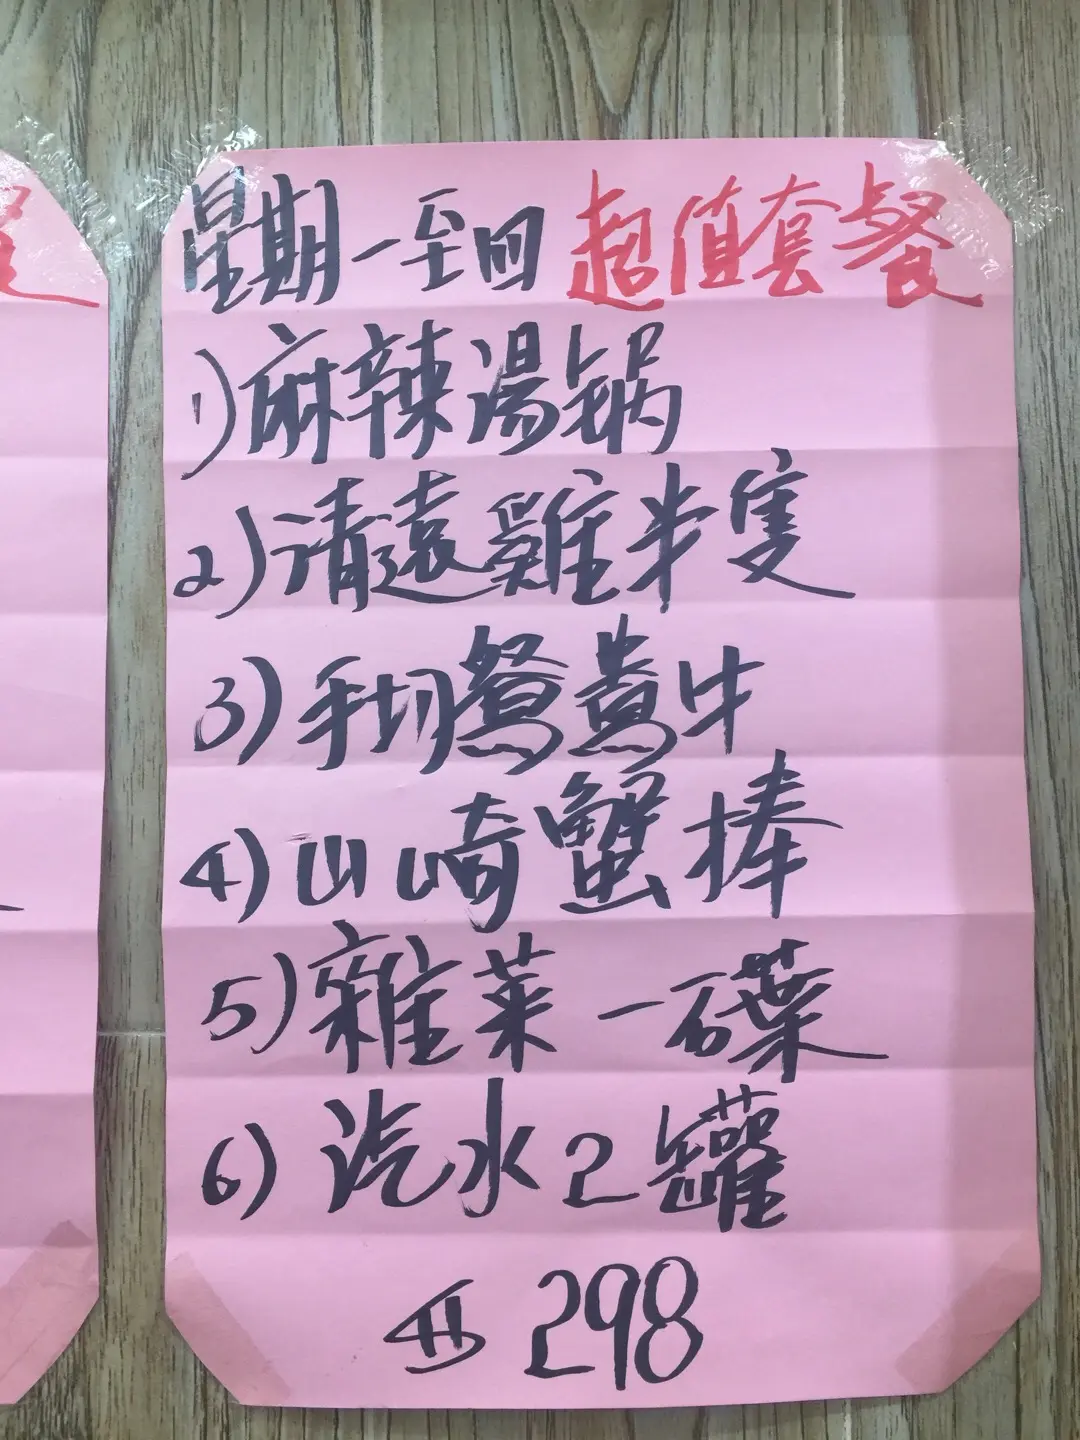 星期一至四 超值套餐
1) 麻辣湯锅
2) 清遠雞半隻
3) 手切鴛鴦牛
4) 山崎蟹棒
5) 雜菜一碟
6) 汽水2罐
$298